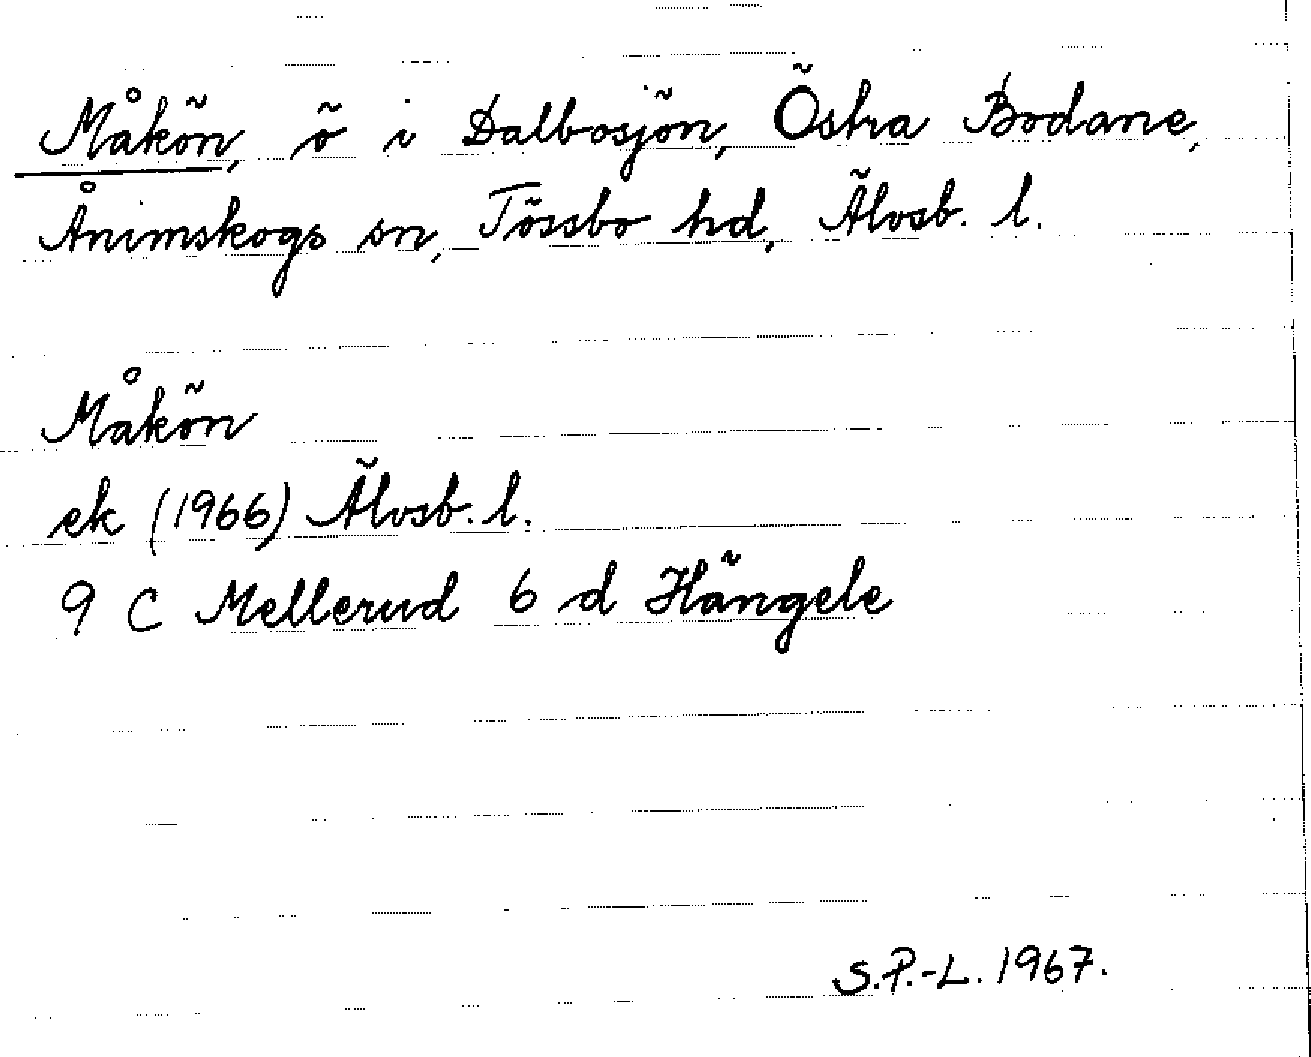 Måkön, ö i Dalbosjön, Östra Bodane,
Ånimskogs sn, Tössbo hd, Älvsb. l.
Måkön
ek (1966) Älvsb. l.
9 C Mellerud 6 d Hängele
S.P.-L. 1967.